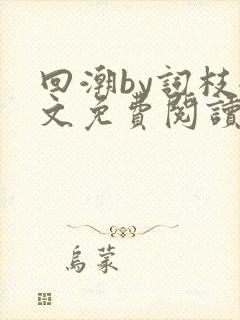 回潮by詞枝
文免費閱讀
烏蒙